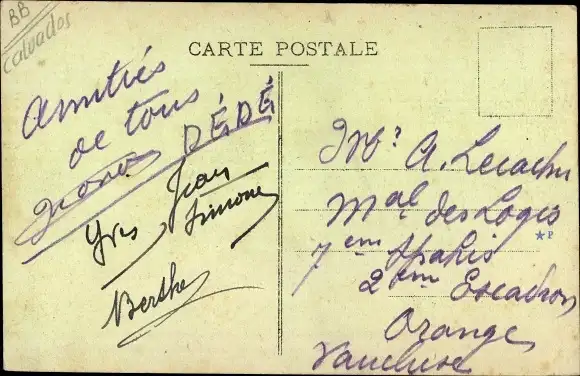 BB
Calvados
CARTE POSTALE
Amitiés
de tous
DÉDÉ
Jean
Yves
Simone
Berthe
Mr A. Lecachu
Mal des Logis
7em Spahis
2em Escadron
Orange
Vaucluse
★P